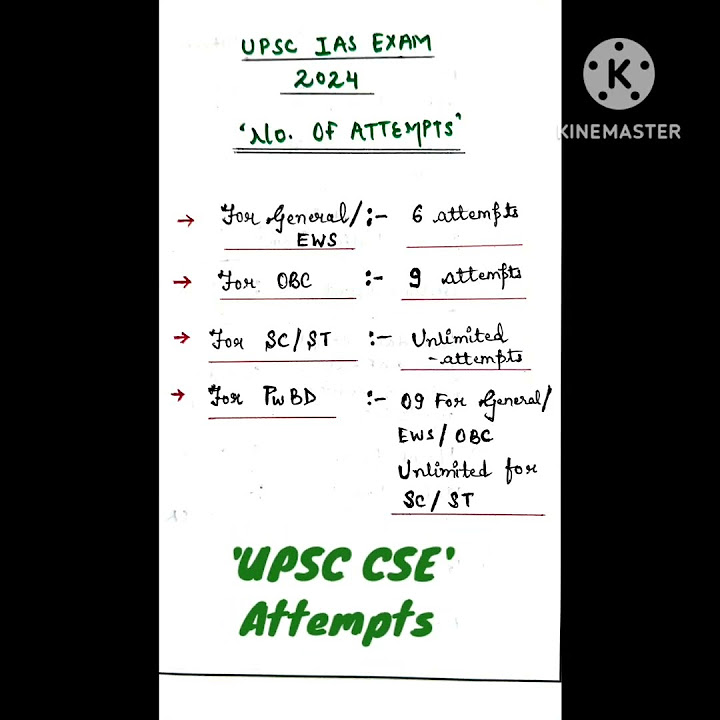 UPSC IAS EXAM
2024
'No. OF ATTEMPTS'
K
KINEMASTER
→ For General/ :- 6 attempts
EWS
→ For OBC :- 9 attempts
→ For SC/ST :- Unlimited
-attempts
→ For PwBD :- 09 For General/
EWS/OBC
Unlimited for
SC/ST
'UPSC CSE'
Attempts